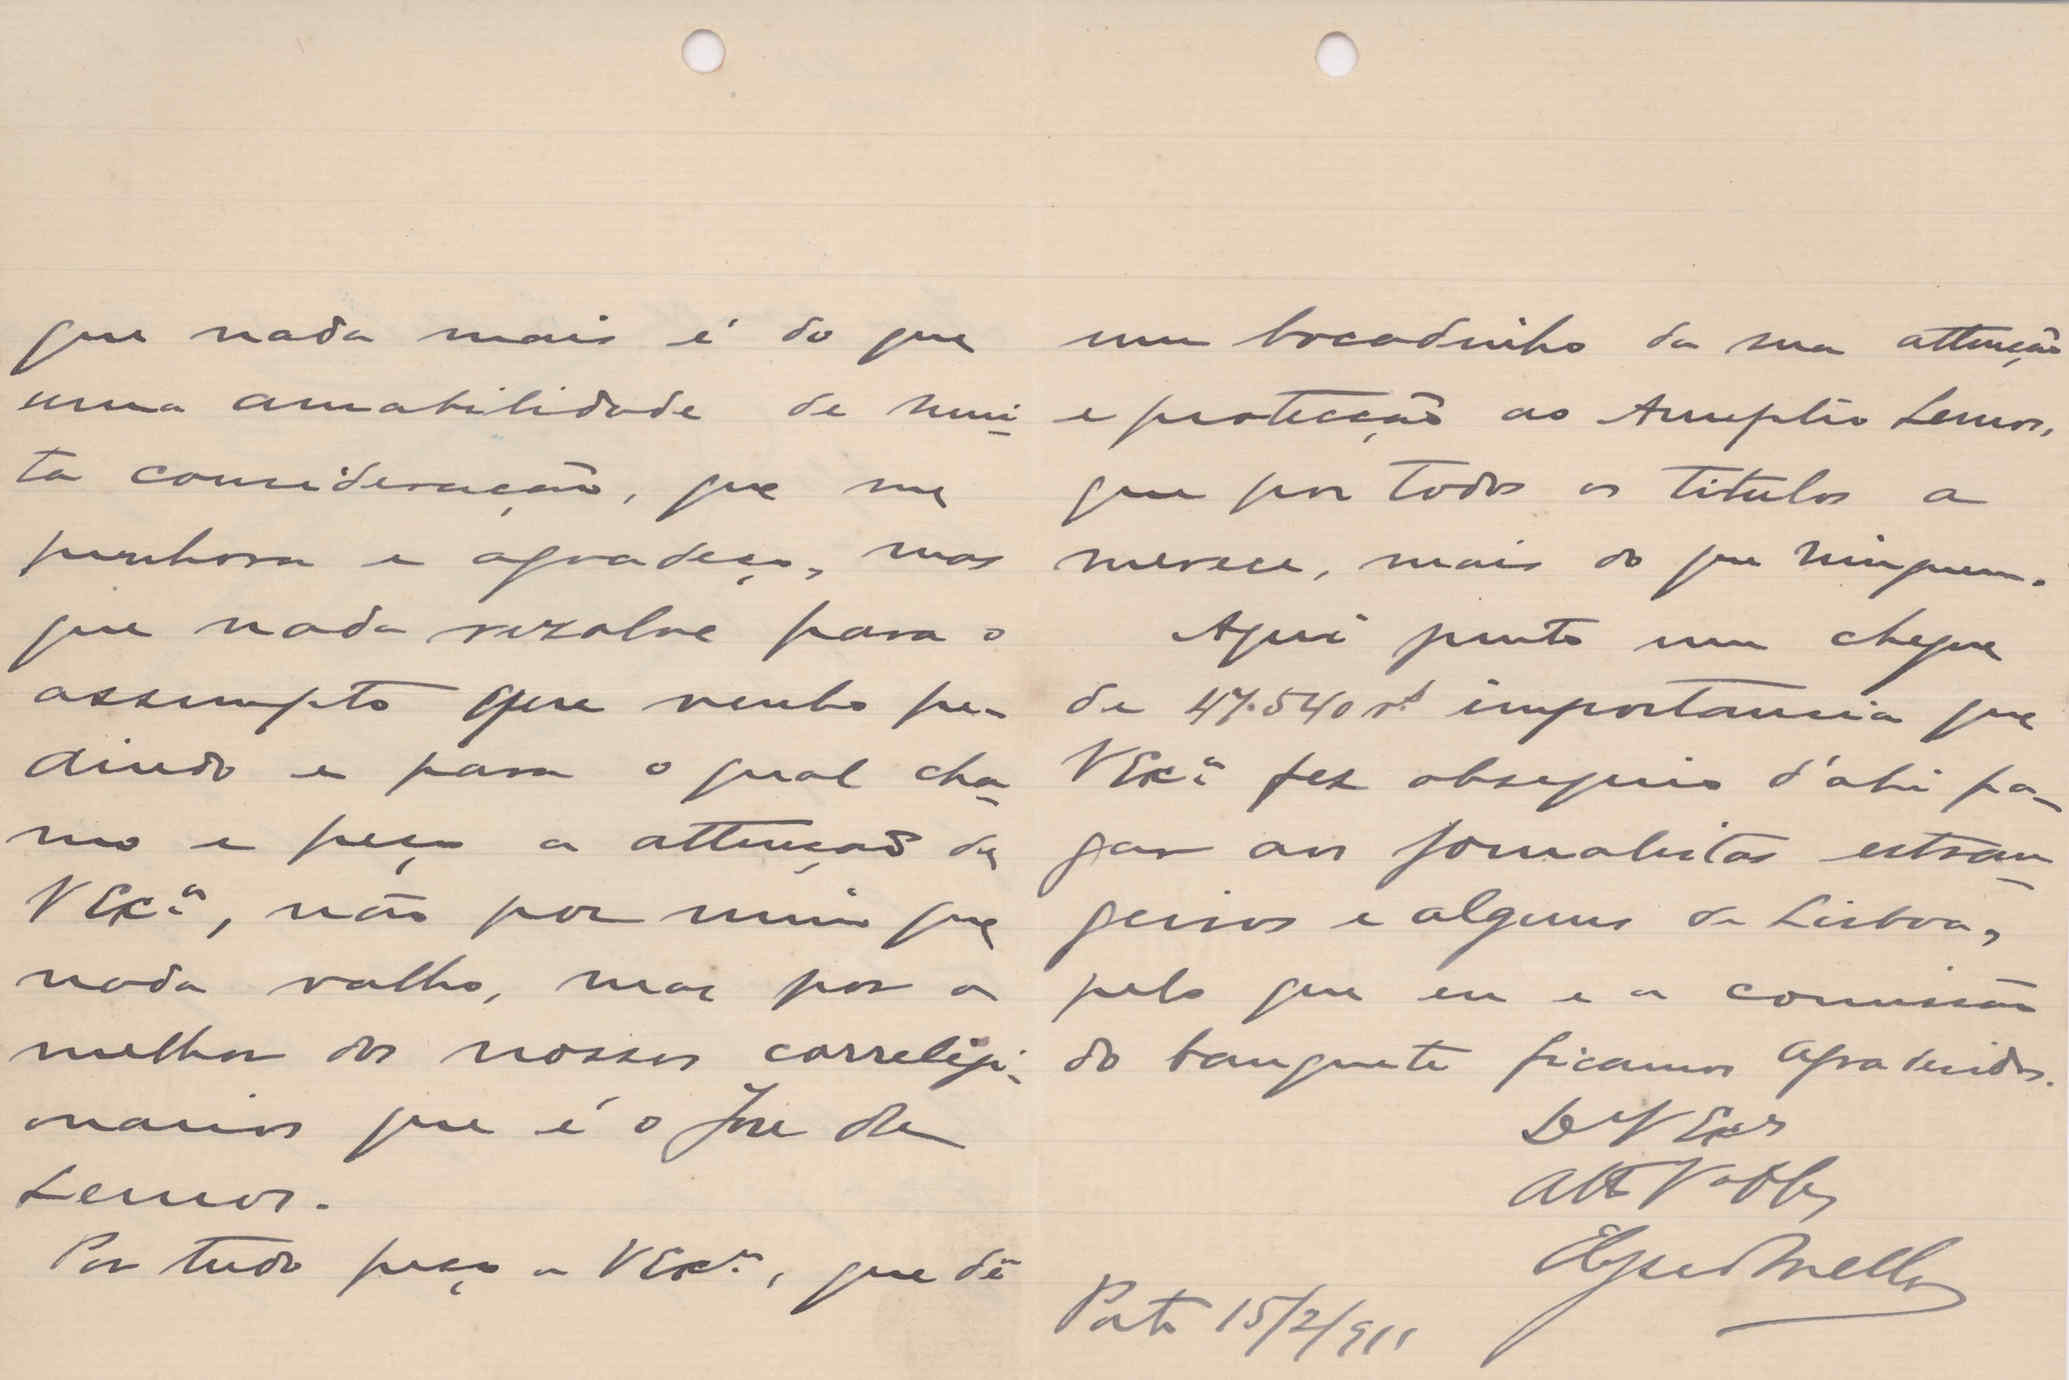 que nada mais é do que
uma amabilidade de mui-
ta consideração, que me
penhora e agradeço, mas
que nada rezolve para o
assumpto que venho pe-
dindo e para o qual cha-
mo e peço a attenção de
V Exª, não por mim que
nada valho, mas por o
melhor dos nossos correligi-
onarios que é o José de
Lemos.
Por tudo peço a V Exª, que dê
um bocadinho da sua attenção
e protecção ao Lemos,
que por todos os titulos a
merece, mais do que ninguem.
Aqui junto um cheque
de 47.540 rs importancia que
V Exª fez obsequio d'ahi pa-
gar aos jornalistas estran-
geiros e alguns de Lisboa,
pelo que eu e a comissão
do banquete ficamos agradecidos.
De V Exª
Attº
Mello
Porto 15/2/911